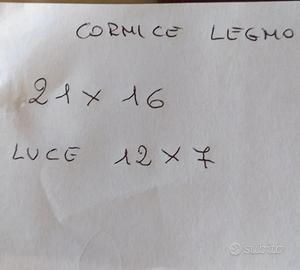 CORNICE LEGNO
21 x 16
LUCE 12 x 7
subito